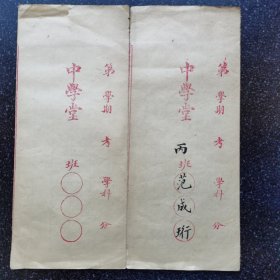 第 學期 考 學科 分
中學堂 丙班 范成珩
第 學期 考 學科 分
中學堂 班